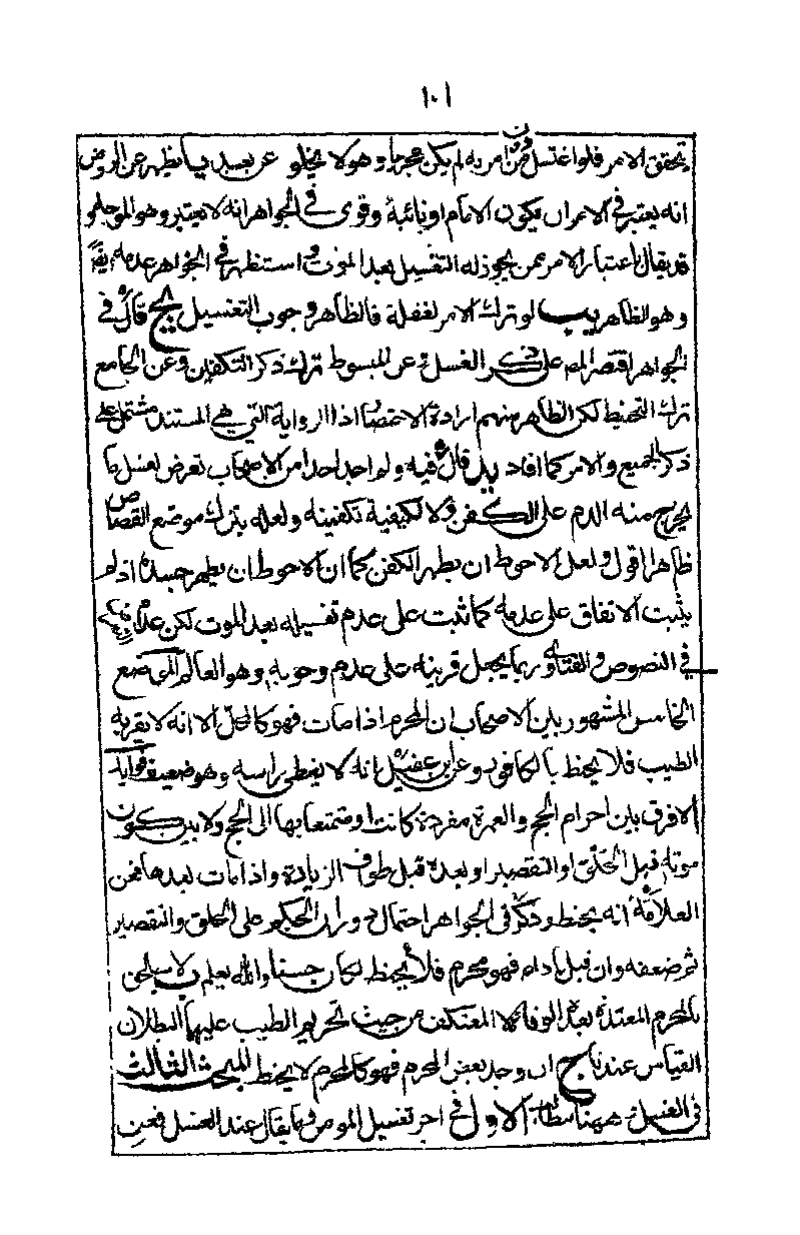 ١٠١
يتحقق الامر فلو اغتسل من دون امر به لم يكن مجزيا وهو لا يخلو عن بعد يظهر عن الروض
انه يعتبر في الامر ان يكون الامام او نائبه وقوى في الجواهر انه لا يعتبر وهو
قد يقال باعتبار الامر ممن يجوز له التغسيل بعد الموت واستظهر في الجواهر عدمه ايضا
وهو الظاهر يب لو ترك الامر لغفلة فالظاهر وجوب التغسيل يج قال في
الجواهر اقتصر المص على ذكر الغسل وعن المبسوط ترك ذكر التكفين وعن الجامع
ترك التحنيط لكن الظاهر منهم ارادة الاختصار اذ الرواية التي هي المستند مشتمل على
ذكر الجميع والامر كما افاد يد قال فيه ولم اجد احدا من الاصحاب تعرض لغسل ما
يخرج منه الدم على الكفن ولا لكيفية تكفينه ولعله يترك موضع القصاص
ظاهرا اقول ولعل الاحوط ان يطهر الكفن كما ان الاحوط ان يطهر جسده اذ لم
يثبت الاتفاق على عدمه كما ثبت على عدم تغسيله بعد الموت لكن عدم
في النصوص والفتاوى ربما يجعل قرينة على عدم وجوبه وهو العالم الموضع
الخامس المشهور بين الاصحاب ان المحرم اذا مات فهو كالمحل الا انه لا يقربه
الطيب فلا يحنط بالكافور وعن ابن عقيل انه لا يغطى راسه وهو ضعيف فوايد
ا لا فرق بين احرام الحج والعمرة مفردة كانت او متمتعا بها الى الحج ولا بين كون
موته قبل الحلق او التقصير او بعده قبل طواف الزيارة واذا مات بعدها فعن
العلامة انه يحنط وذكر في الجواهر احتمال دوران الحكم على الحلق والتقصير
ثم ضعفه وان قبل اداه فهو محرم فلا يحنط لكان حسنا والله يعلم ب لا يلحق
بالمحرم المعتدة بعدة الوفاة ولا المعتكف من حيث تحريم الطيب عليهما لبطلان
القياس عندنا ج ان وجد بعض المحرم فهو كالمحرم لا يحنط المبحث الثالث
في الغسل وههنا مطالب الاول في اجر تغسيل المؤمن وما يقال عند الغسل فعن